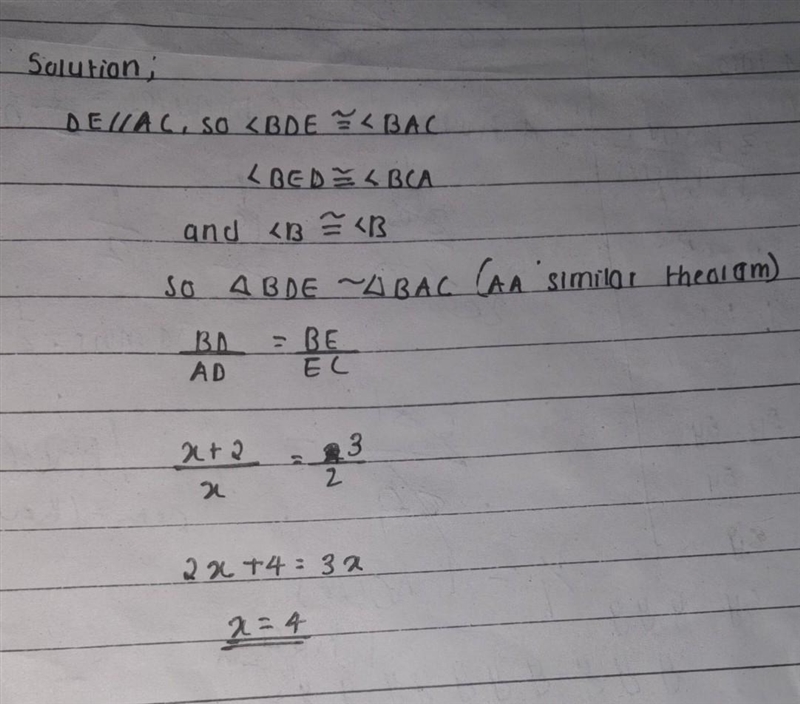 Solution;
DE//AC, so <BDE ≅ <BAC
<BED ≅ <BCA
and <B ≅ <B
so △BDE ~ △BAC (AA similar thealam)
BD/AD = BE/EC
x+2/x = 3/2
2x+4 = 3x
x = 4